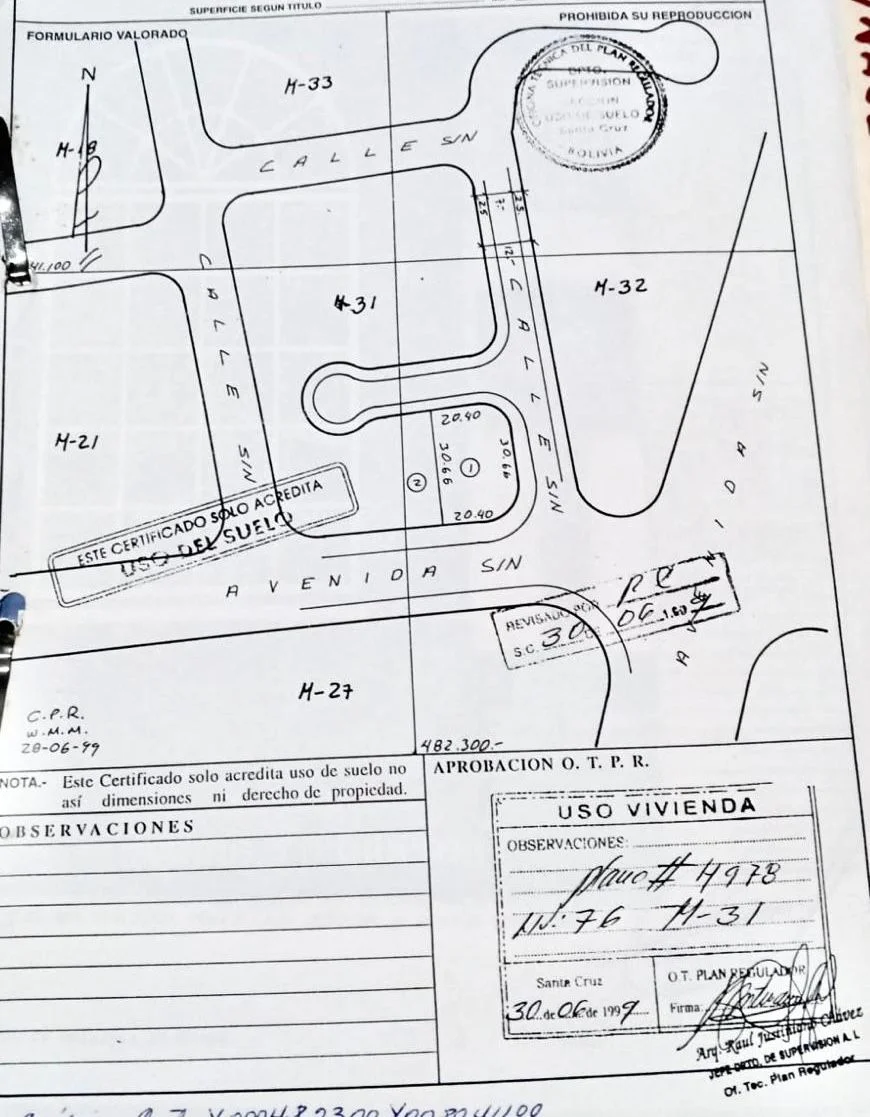 SUPERFICIE SEGUN TITULO
PROHIBIDA SU REPRODUCCION
FORMULARIO VALORADO
N
M-33
OFICINA TECNICA DEL PLAN REGULADOR
DPTO.
SUPERVISION
SECCION
USO DE SUELO
Santa Cruz
BOLIVIA
M-18
CALLE S/N
2.5
7.-
2.5
12.-
41.100
M-31
M-32
CALLE S/N
CALLE S/N
M-21
20.40
30.66
30.66
1
2
20.40
ESTE CERTIFICADO SOLO ACREDITA
USO DEL SUELO
AVENIDA S/N
AVENIDA S/N
REVISADO POR
S.C. 30 06 199
M-27
C.P.R.
W.M.M.
28-06-99
482.300.-
NOTA.- Este Certificado solo acredita uso de suelo no
así dimensiones ni derecho de propiedad.
OBSERVACIONES
APROBACION O. T. P. R.
USO VIVIENDA
OBSERVACIONES:
plano # 4978
UV: 76 M-31
Santa Cruz
30 de 06 de 1999
O.T. PLAN REGULADOR
Firma:
Arq. Raul Justiniano Chávez
JEFE DPTO. DE SUPERVISION A. I.
Of. Tec. Plan Regulador